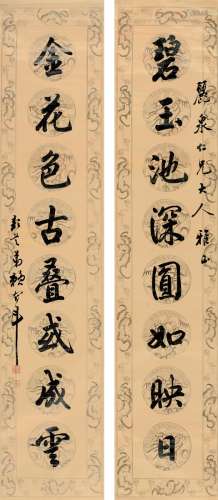 麗泉仁兄大人雅正
碧玉池深圓如映日
金花色古叠或成雲